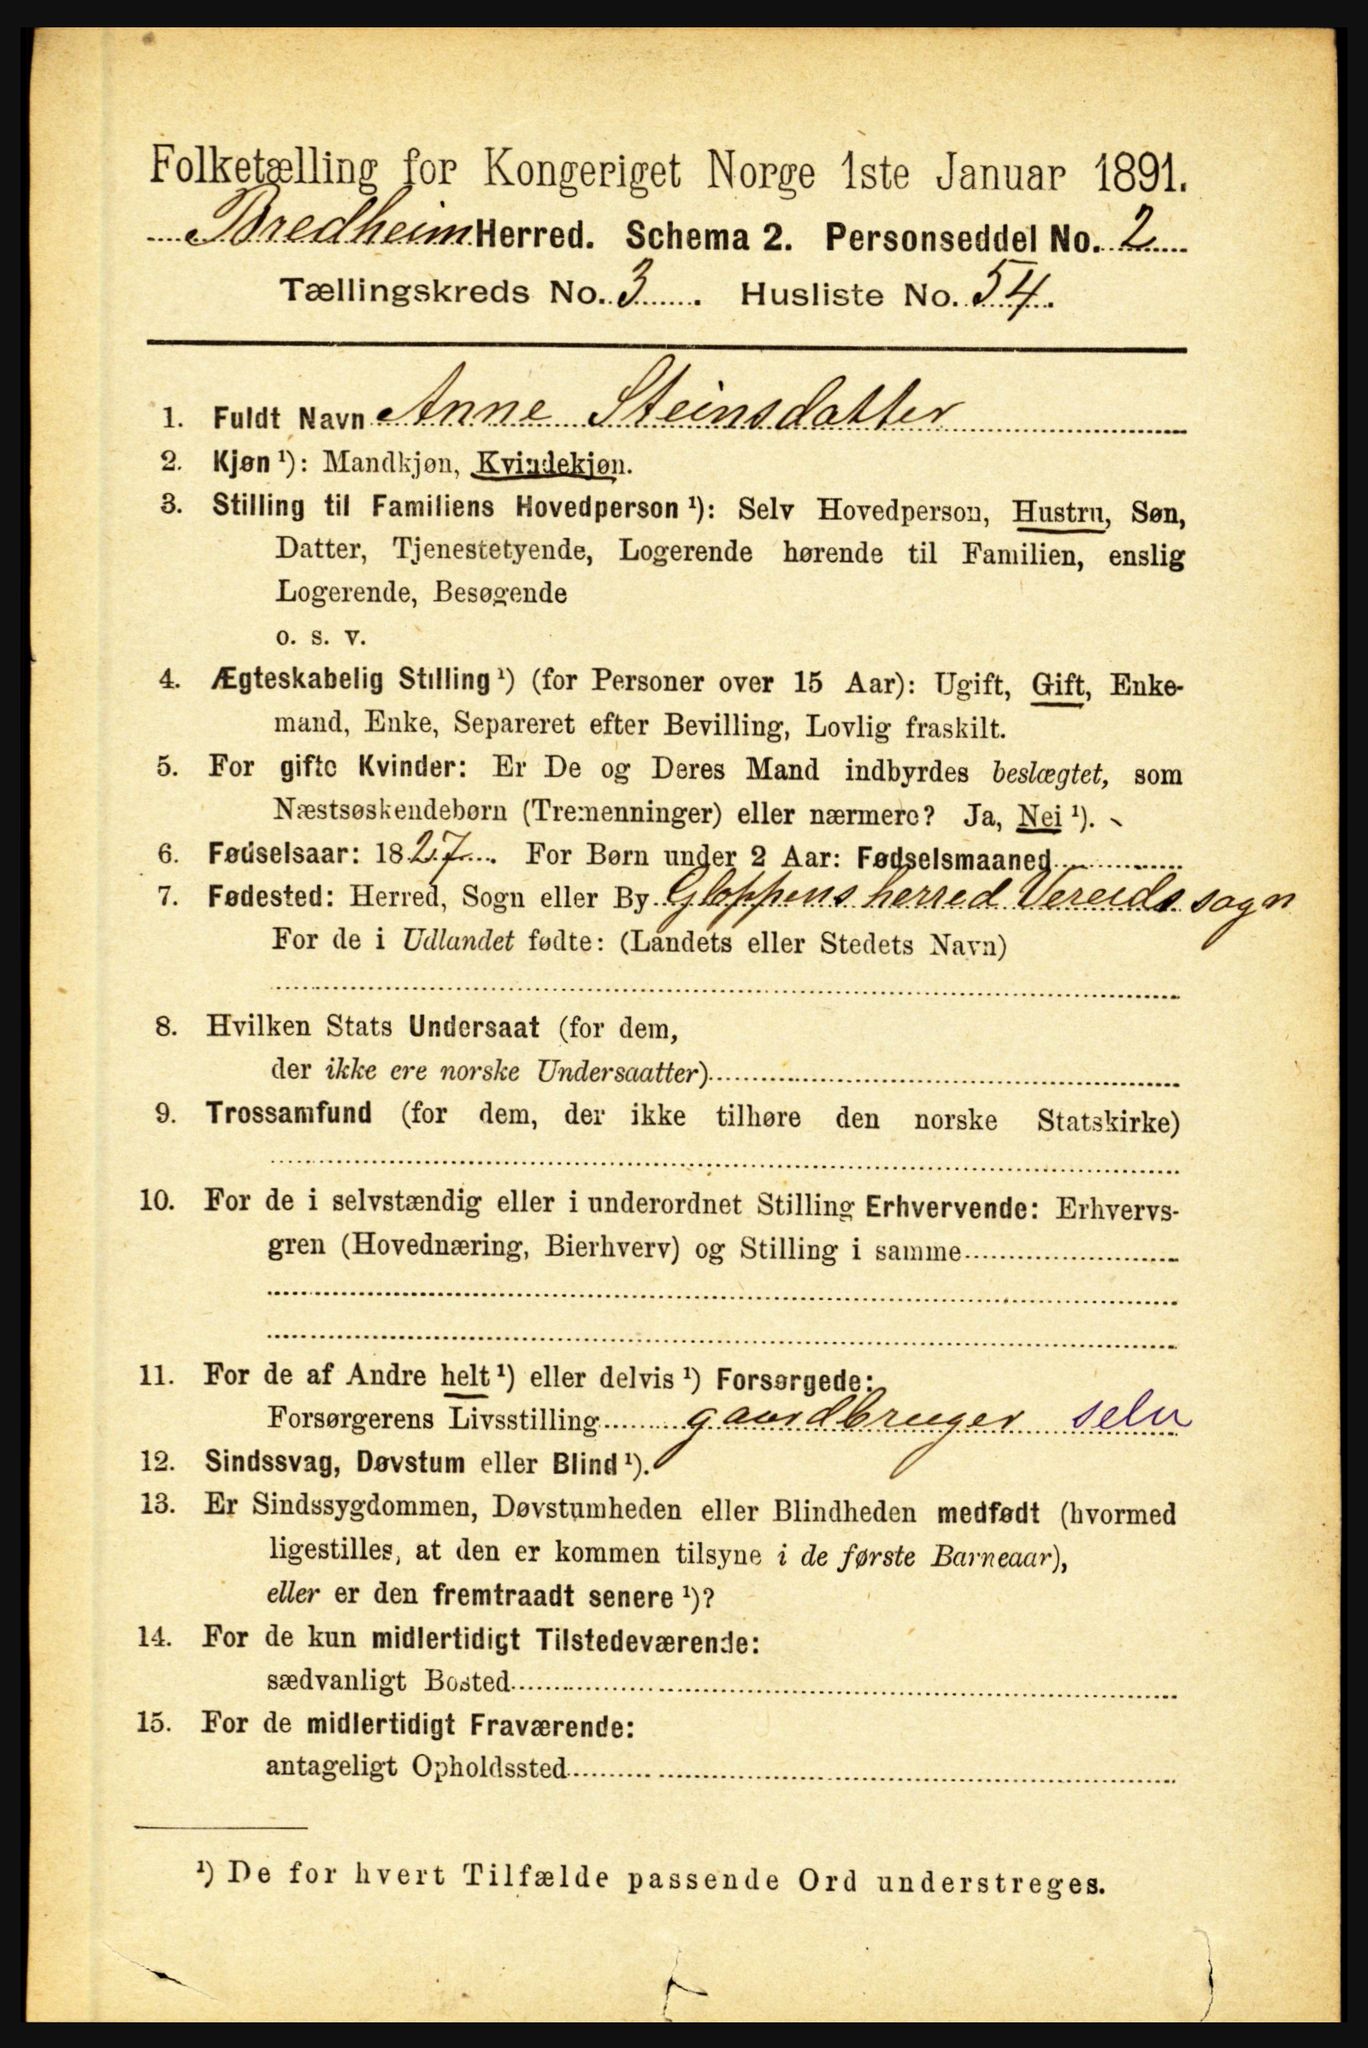 Folketælling for Kongeriget Norge 1ste Januar 1891.
Bredheim Herred. Schema 2. Personseddel No. 2
Tællingskreds No. 3. Husliste No. 54.
1. Fuldt Navn Anne Steinsdatter
2. Kjøn ¹): Mandkjøn, Kvindekjøn.
3. Stilling til Familiens Hovedperson ¹): Selv Hovedperson, Hustru, Søn,
Datter, Tjenestetyende, Logerende hørende til Familien, enslig
Logerende, Besøgende
o. s. v.
4. Ægteskabelig Stilling ¹) (for Personer over 15 Aar): Ugift, Gift, Enke-
mand, Enke, Separeret efter Bevilling, Lovlig fraskilt.
5. For gifte Kvinder: Er De og Deres Mand indbyrdes beslægtet, som
Næstsøskendebørn (Tremenninger) eller nærmere? Ja, Nei ¹).
6. Fødselsaar: 1827. For Børn under 2 Aar: Fødselsmaaned
7. Fødested: Herred, Sogn eller By Gloppens herred Vereids sogn
For de i Udlandet fødte: (Landets eller Stedets Navn)
8. Hvilken Stats Undersaat (for dem,
der ikke ere norske Undersaatter)
9. Trossamfund (for dem, der ikke tilhøre den norske Statskirke)
10. For de i selvstændig eller i underordnet Stilling Erhvervende: Erhvervs-
gren (Hovednæring, Bierhverv) og Stilling i samme
11. For de af Andre helt ¹) eller delvis ¹) Forsørgede:
Forsørgerens Livsstilling gaardbruger selv
12. Sindssvag, Døvstum eller Blind ¹).
13. Er Sindssygdommen, Døvstumheden eller Blindheden medfødt (hvormed
ligestilles, at den er kommen tilsyne i de første Barneaar),
eller er den fremtraadt senere ¹)?
14. For de kun midlertidigt Tilstedeværende:
sædvanligt Bosted
15. For de midlertidigt Fraværende:
antageligt Opholdssted
¹) De for hvert Tilfælde passende Ord understreges.